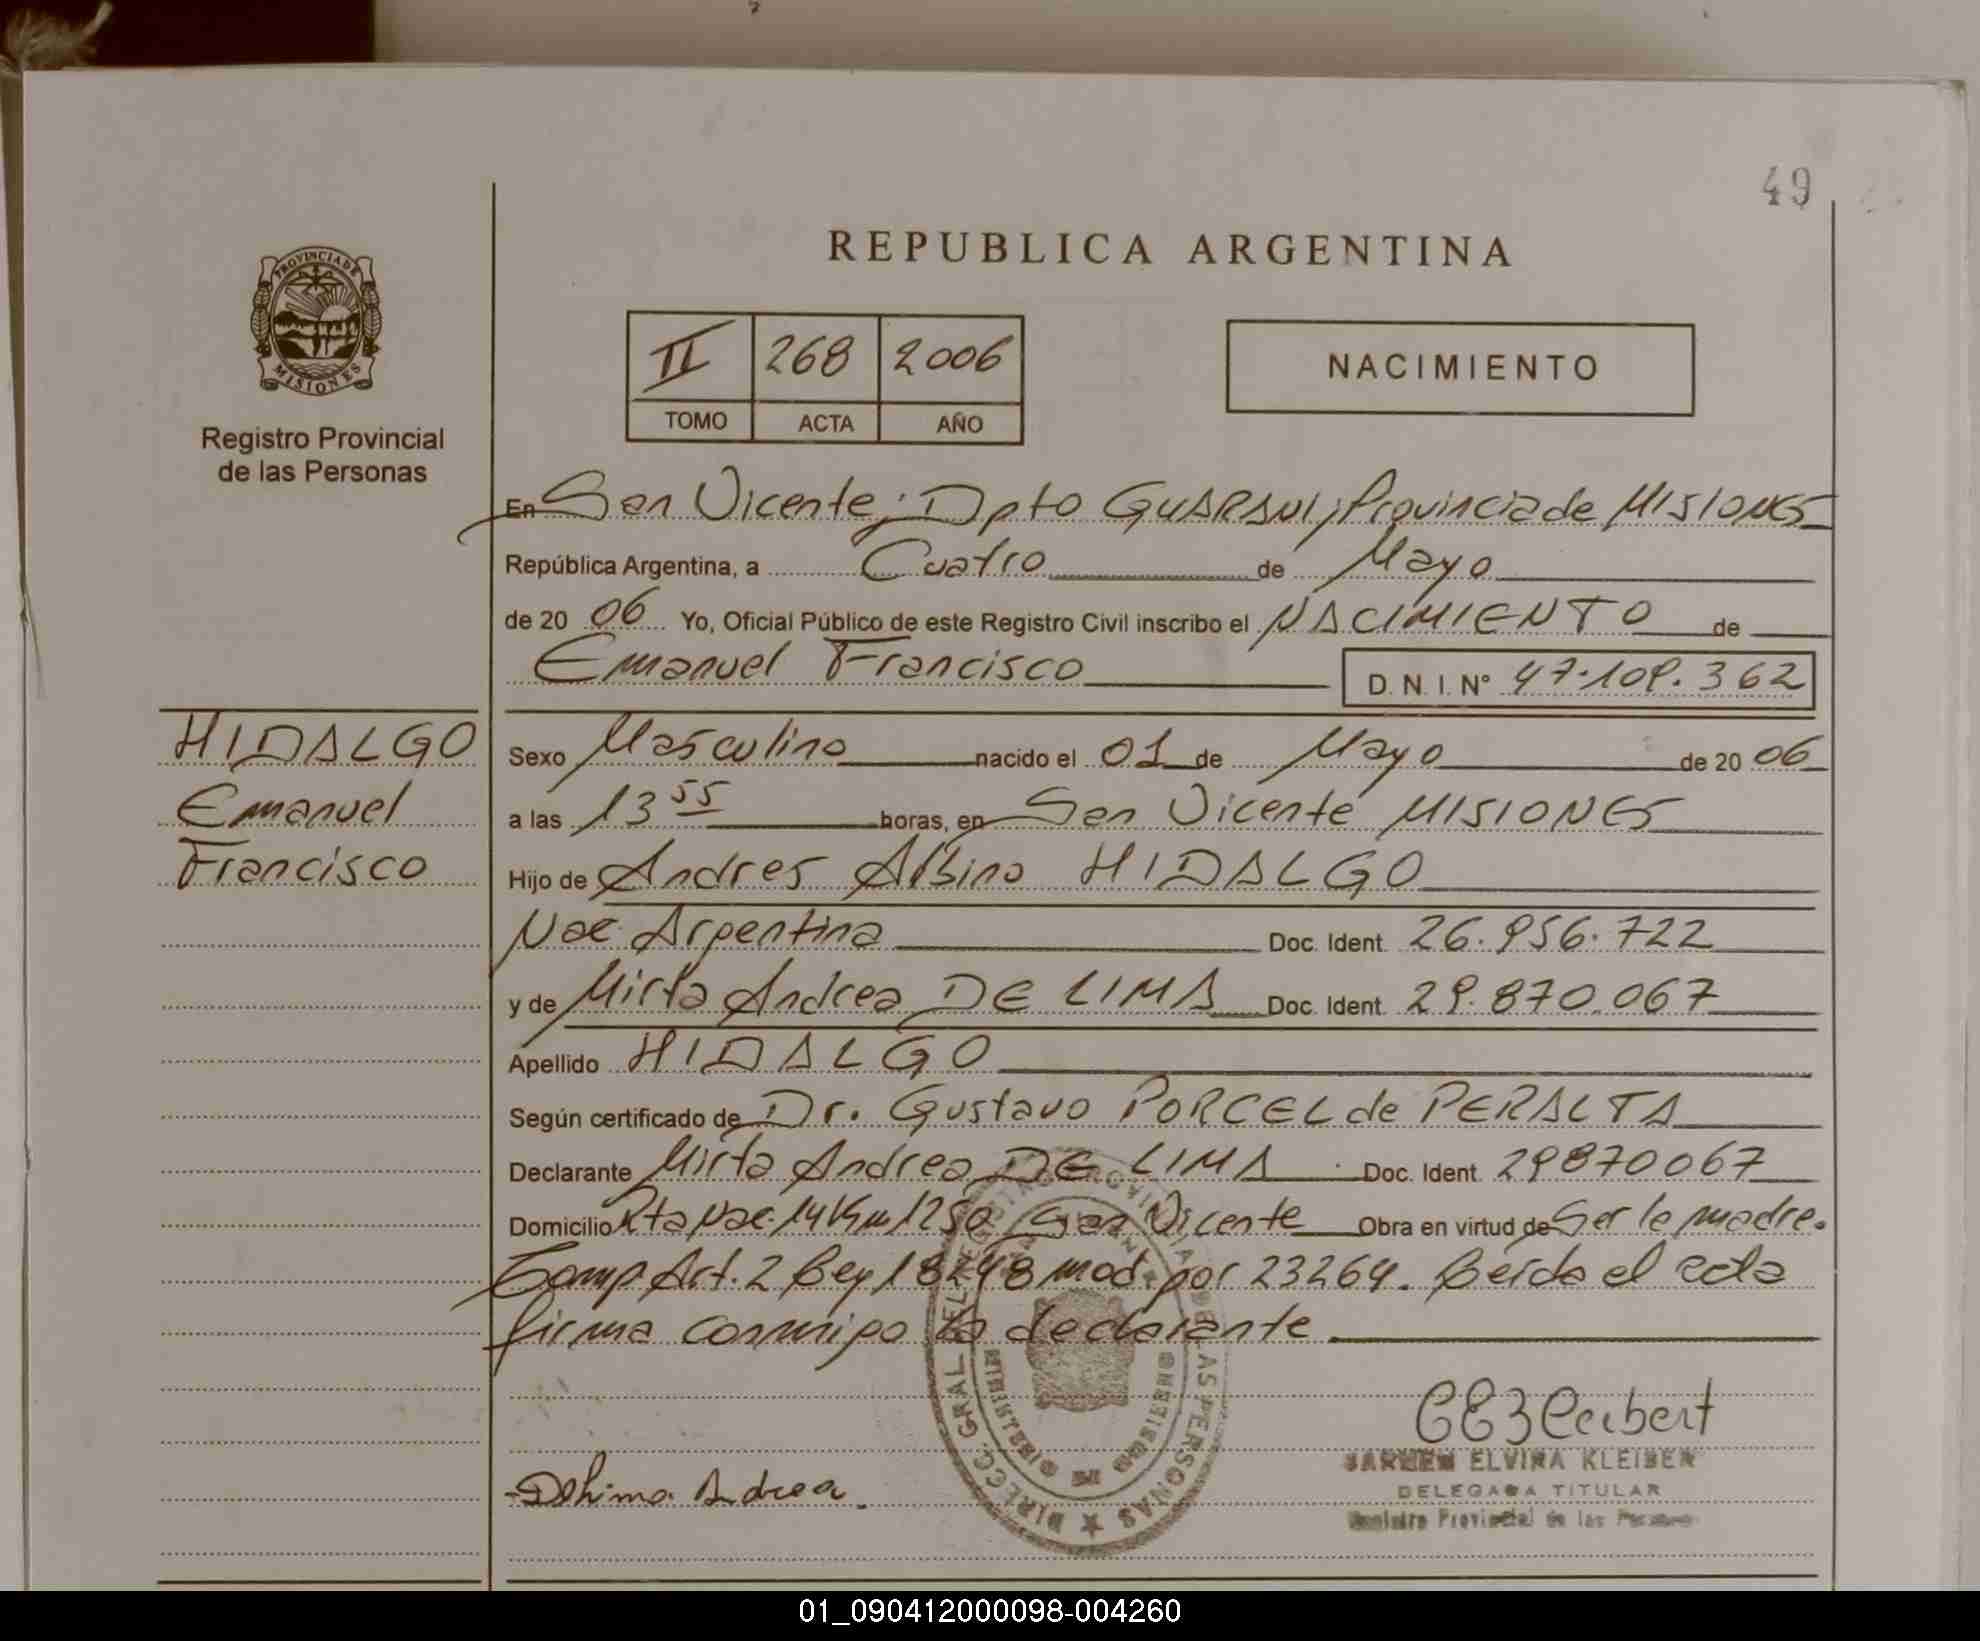 49
REPUBLICA ARGENTINA
PROVINCIA DE
MISIONES
Registro Provincial
de las Personas
II 268 2006
TOMO ACTA AÑO
NACIMIENTO
En San Vicente; Dpto GUARANI, Provincia de MISIONES
República Argentina, a Cuatro de Mayo
de 20 06 Yo, Oficial Público de este Registro Civil inscribo el NACIMIENTO de
Emanuel Francisco D. N. I. N° 47.109.362
HIDALGO
Emanuel
Francisco
Sexo Masculino nacido el 01 de Mayo de 20 06
a las 13 55 horas, en San Vicente MISIONES
Hijo de Andres Albino HIDALGO
Nac. Argentina Doc. Ident. 26.956.722
y de Mirta Andrea DE LIMA Doc. Ident. 29.870.067
Apellido HIDALGO
Según certificado de Dr. Gustavo PORCEL de PERALTA
Declarante Mirta Andrea DE LIMA Doc. Ident. 29870067
Domicilio Rta Nac. 14 Km 1250 San Vicente Obra en virtud de Ser la madre.
Comp. Art. 2 Ley 18248 mod. por 23264. Leida el acta
firma conmigo la declarante
DIRECC. GRAL. DEL REGISTRO PROVINCIAL DE LAS PERSONAS
Delima Andrea.
CARMEN ELVIRA KLEIBER
DELEGADA TITULAR
Registro Provincial de las Personas
01_090412000098-004260